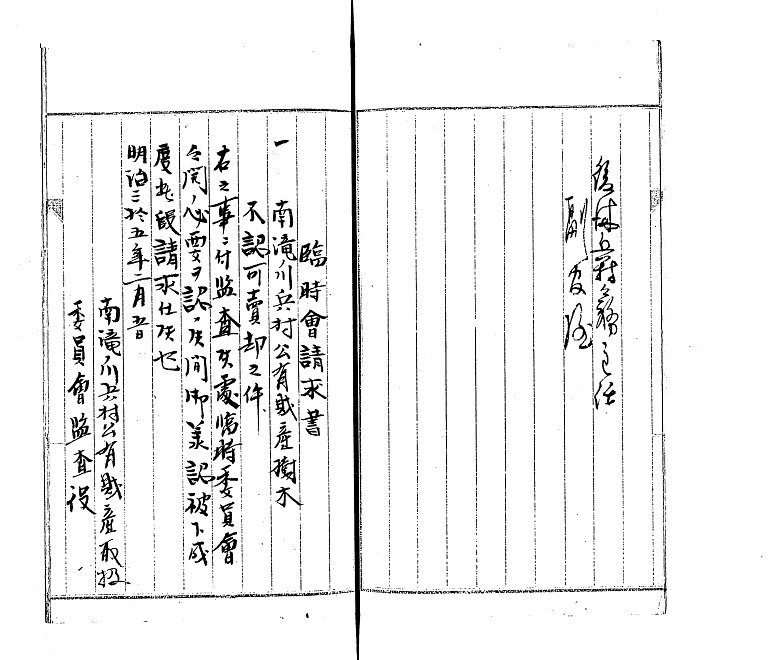 副
臨時會請求書
一 南滝川兵村公有財産樹木
不認可賣却之件
右之事ニ付監査候處臨時委員會
必要ヲ認メ候間御承認被下成
度此段請求仕候也
明治三拾五年二月五日
南滝川兵村公有財産取扱
委員會監査役